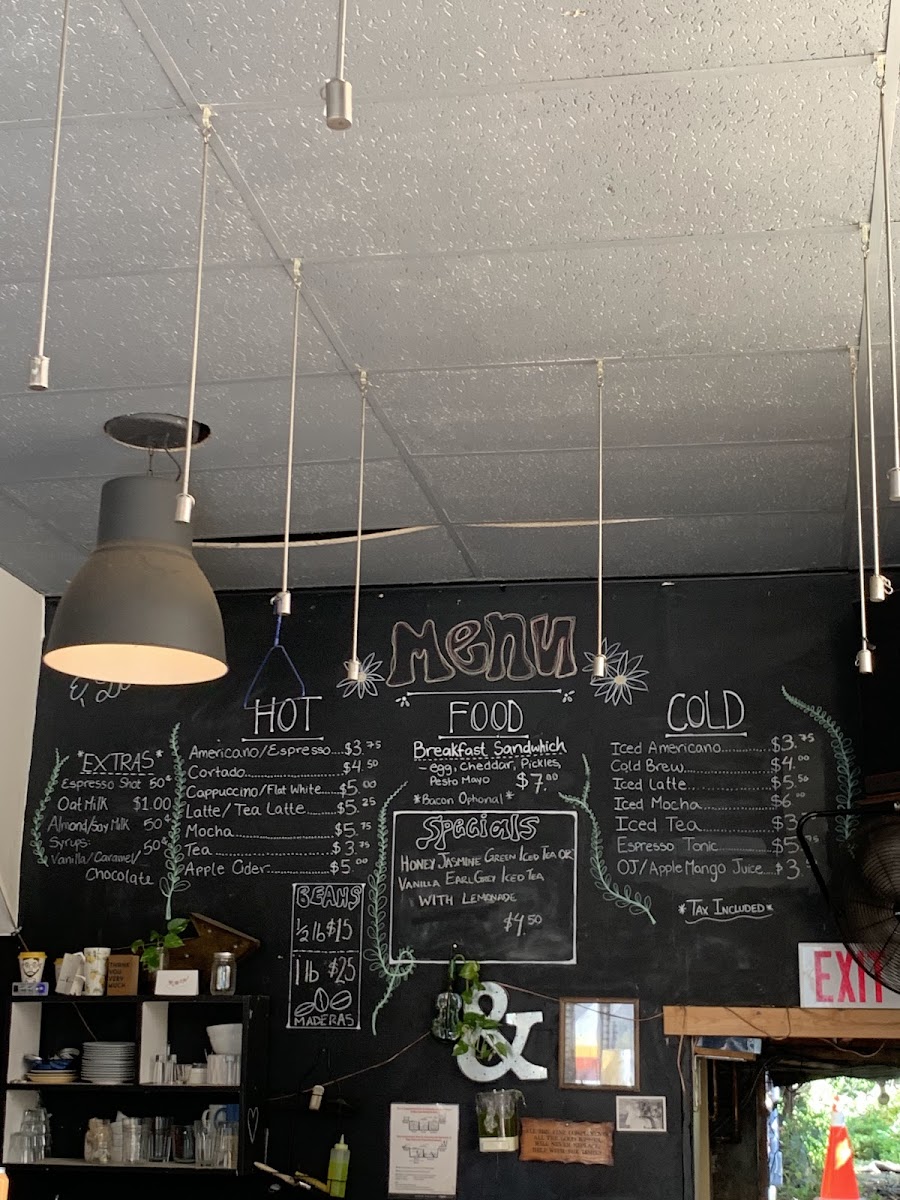 Menu
*EXTRAS*
Espresso Shot 50¢
Oat Milk $1.00
Almond/Soy Milk 50¢
Syrups: 50¢
Vanilla/Caramel/
Chocolate
HOT
Americano/Espresso....$3.75
Cortado....$4.50
Cappuccino/Flat White....$5.00
Latte/Tea Latte....$5.25
Mocha....$5.75
Tea....$3.75
Apple Cider....$5.00
BEANS
1/2 lb $15
1 lb $25
MADERAS
FOOD
Breakfast Sandwhich
egg, Cheddar, Pickles,
Pesto Mayo $7.00
*Bacon Optional*
Specials
HONEY JASMINE GREEN ICED TEA OR
VANILLA EARL GREY ICED TEA
WITH LEMONADE
$4.50
COLD
Iced Americano....$3.75
Cold Brew....$4.00
Iced Latte....$5.50
Iced Mocha....$6.00
Iced Tea....$3
Espresso Tonic....$5.75
OJ/Apple Mango Juice....$3.
*TAX INCLUDED*
EXIT
THANK
YOU
VERY
MUCH
&